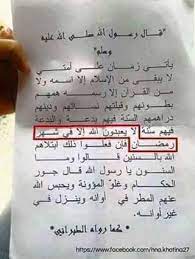 "قال رسول الله صلى الله عليه
وسلم"
يأتى زمان على أمتى
لا يبقى من الإسلام إلا اسمه ولا
من القرآن إلا رسمه همهم
بطونهم وقبلتهم نسائهم ودينهم
دراهمهم السنة فيهم بدعة والبدعة
فيهم سنة لا يعبدون الله إلا فى شهر
رمضان فإن فعلوا ذلك ابتلاهم
الله بالسنين قالوا وما
السنون يا رسول الله قال جور
الحكام وغلو المؤنة ويحبس الله
عنهم المطر فى أوانه وينزل فى
غير أوانه.
"كما رواه الطبرانى"
https://www.facebook.com/hna.khotina27